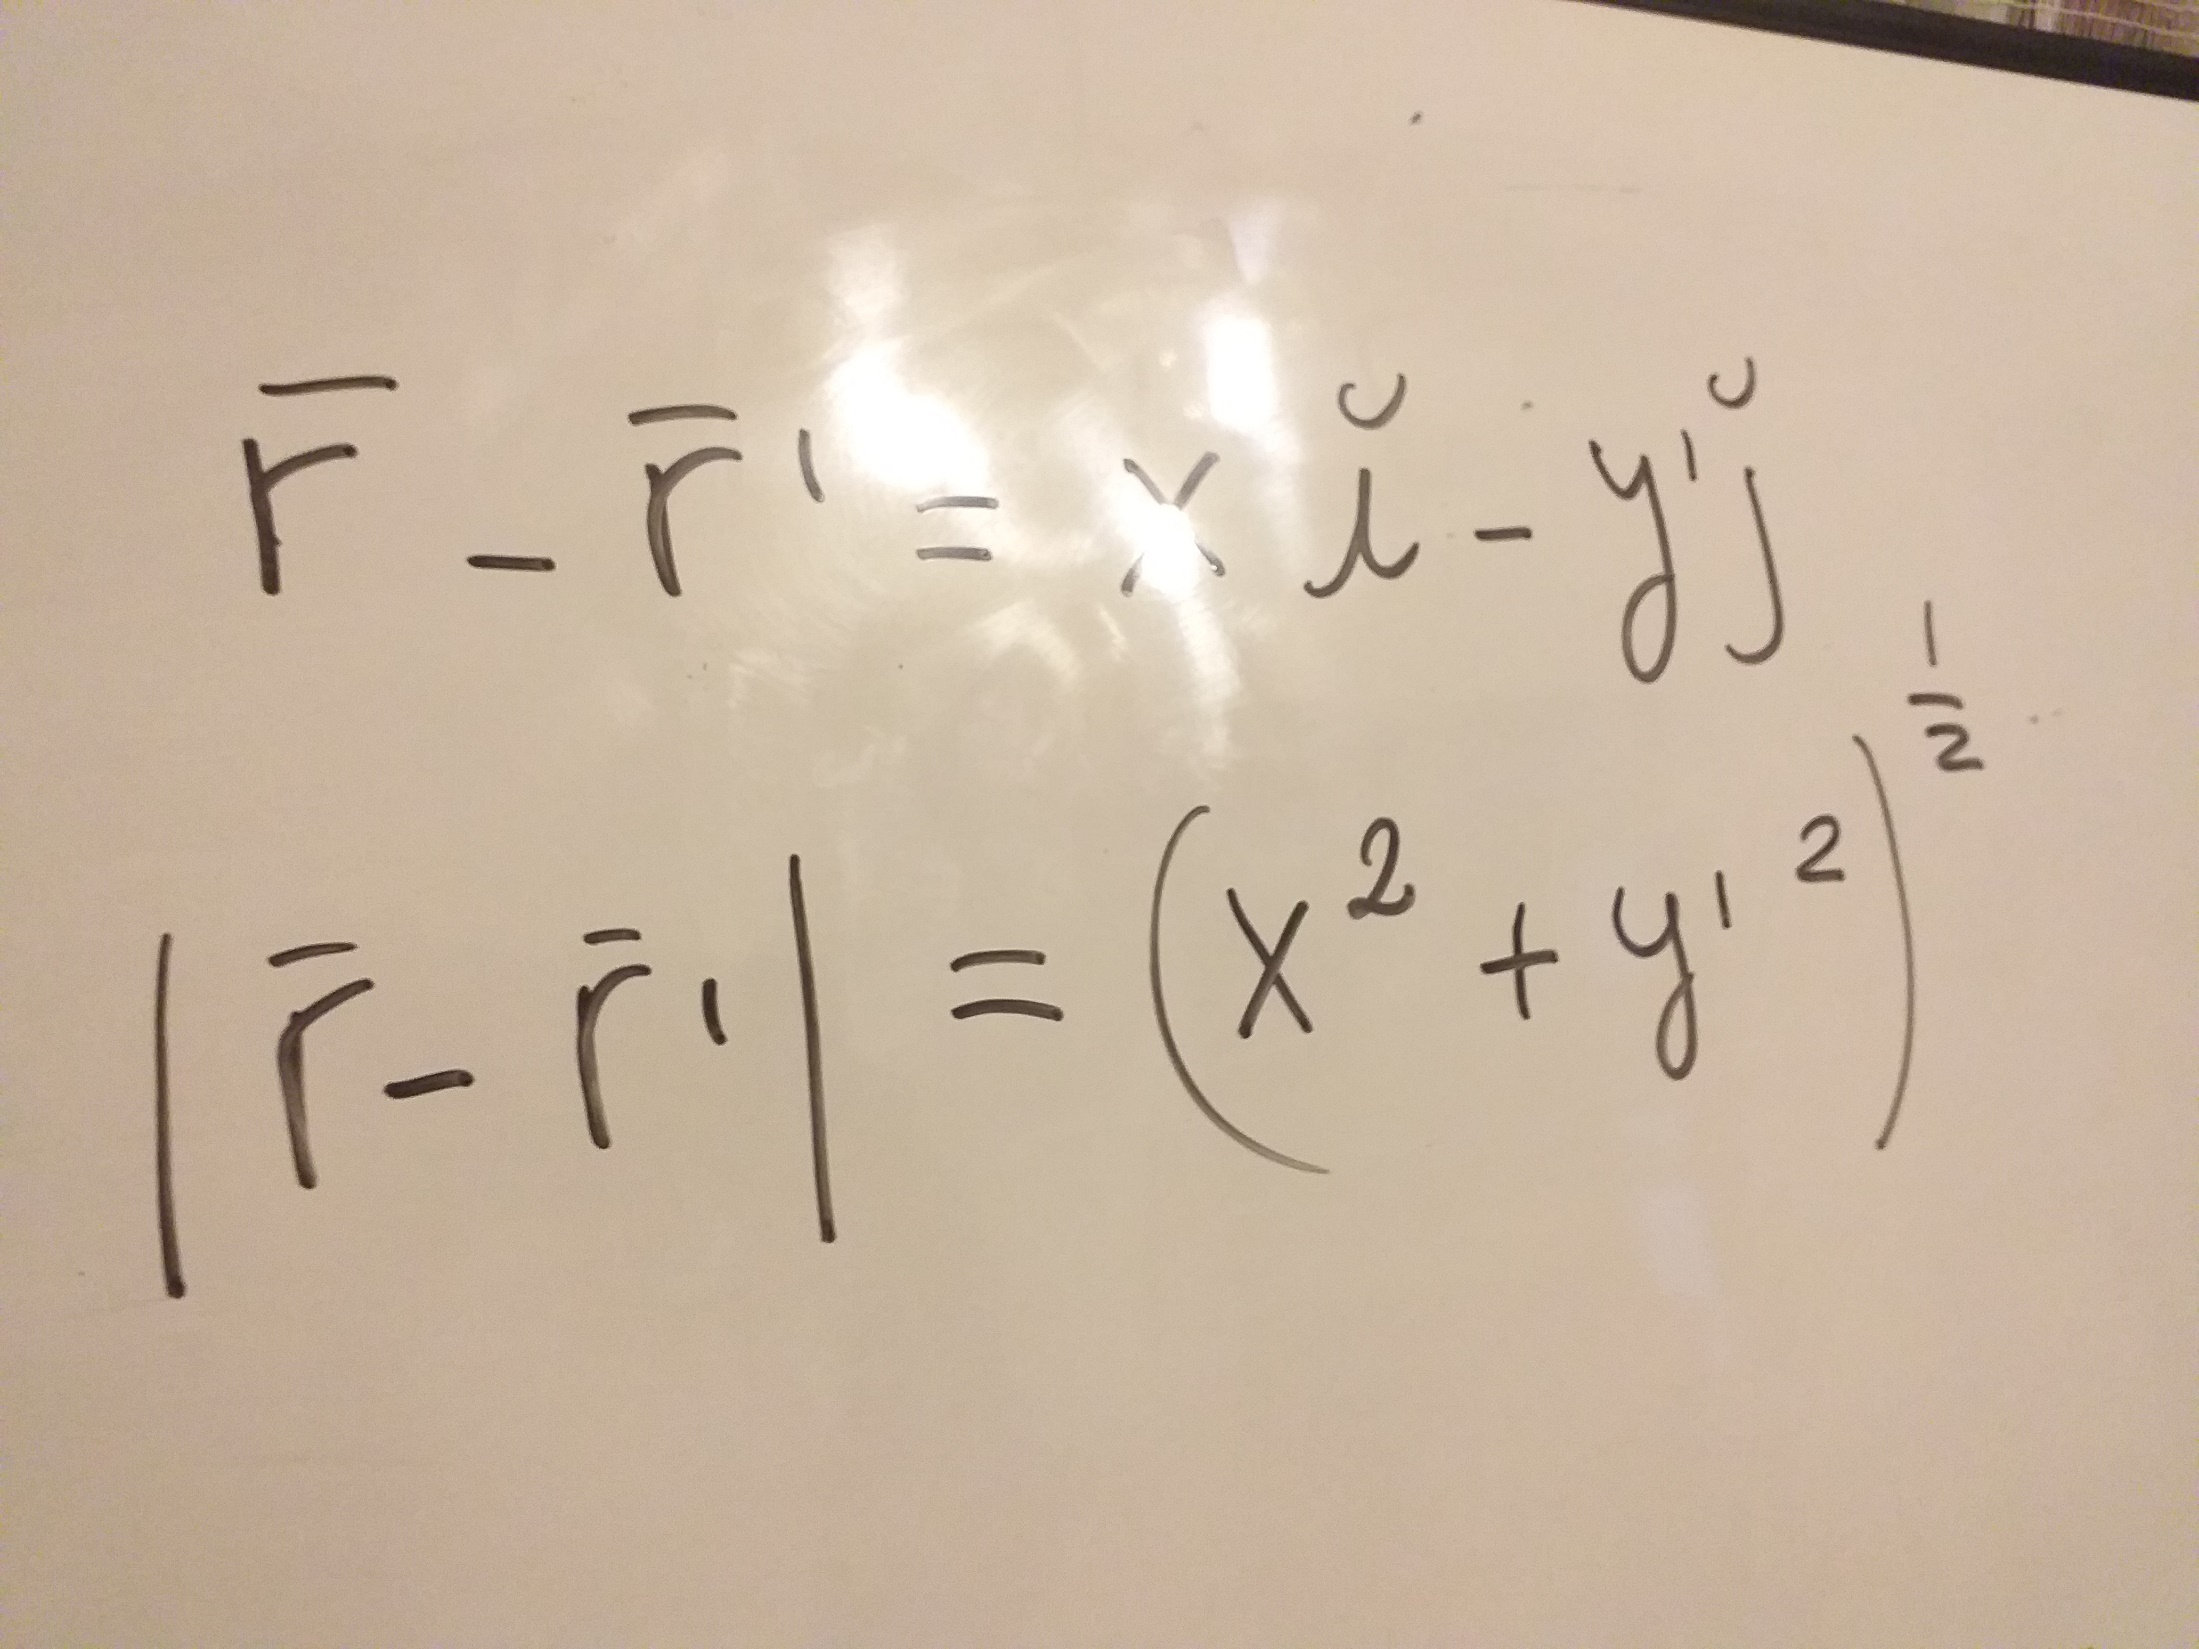 r̅ - r̅' = x ĭ - y' j̆
|r̅ - r̅'| = (x² + y'²)^½